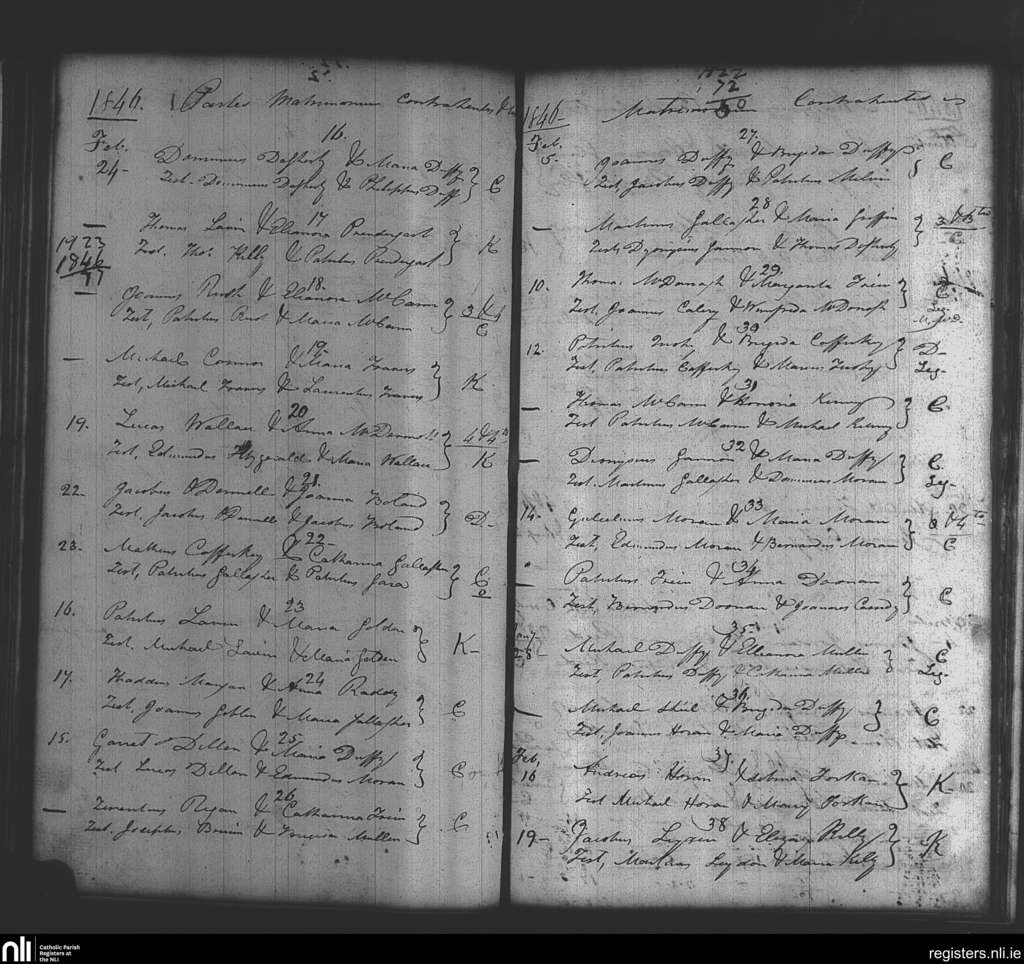 1846. Partes Matrimonium Contrahentes &
16.
Feb. Dominicus Dogherty & Maria Duffy
24- Test. Dominicus Dogherty & Philippus Duffy C
17
— Thomas Lavin & Ellanora Prendergast
Test. Thos. Kelly & Patritius Prendergast K
1923
1846
77
18.
— Joannes Rush & Elianora McCann 3 & 4
Test, Patritius Rush & Maria McCann C
19-
— Michael Connor & Maria Francis
Test, Michael Francis & Laurentius Francis K
20
19. Lucas Wallace & Anna McDermott 4 & 4
Test, Edmundus Fitzgerald & Maria Wallace K
21.
22- Jacobus O'Donnell & Joanna Boland
Test. Jacobus O'Donnell & Jacobus Boland D-
22-
23. Matheus Cafferkey & Catharina Gallagher
Test, Patritius Gallagher & Patritius Gara C
23
16. Patritius Lavin & Maria Golden
Test. Michael Lavin & Maria Golden K-
24
17. Thaddeus Morgan & Anna Raddy
Test, Joannes & Maria Gallagher C
25-
15. Garret Dillon & Maria Duffy
Test Lucas Dillon & Edmundus Moran C
26
— Terentius Regan & Catharina Frein
Test. Josephus & Brigida Mullen C
1822
72
50
1846- Matrimonium Contrahentes
27.
Feb. Joannes Duffy & Brigida Duffy
5. Test, Jacobus Duffy & Patritius C
28
— Martinus Gallagher & Maria Griffin 3 & 3
Test, Dyonisius Gannon & Thomas Dogherty C
29.
10. Thomas McDonagh & Margarita Frein C
Test, Joannes & Winefrida McDonagh Leg-
30
12. Patritius & Brigida Cafferkey D-
Test, Patritius Cafferkey & Marcus Leg-
31
— Thomas McCann & Honoria Kenny C.
Test Patritius McCann & Michael Kenny
32
— Dionysius Gannon & Maria Duffy C.
Test. Martinus Gallagher & Dominicus Moran Leg-
33
14- Gulielmus Moran & Maria Moran & 4to
Test, Edmundus Moran & Bernardus Moran C
34
— Patritius Frein & Anna Doonan
Test, Bernardus Doonan & Joannes Cassidy C
35-
Jany Michael Duffy & Ellanora Mullen C
28- Test, Patritius Duffy & Catharina Mullen Leg.
36.
— Michael Shiel & Brigida Duffy C
Test, Joannes Horan & Maria Duffy
37.
Feb. Andreas Horan &
16 Test Michael Horan & Mary K-
38
19- Jacobus & Eliza Kelly K
Test, Leydon & Maria Kelly
nli
Catholic Parish
Registers at
the NLI
registers.nli.ie